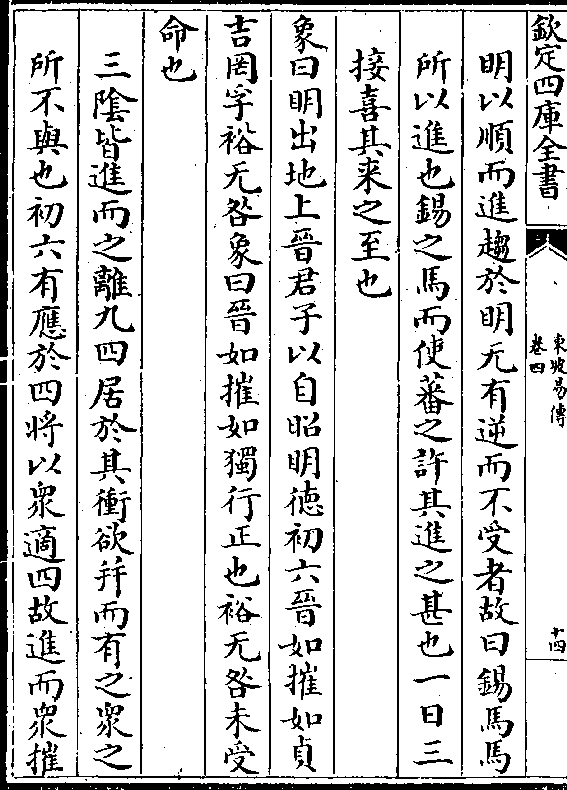 欽定四庫全書
東坡易傳
卷四
十四
明以順而進趨於明无有逆而不受者故曰錫馬馬
所以進也錫之馬而使蕃之許其進之甚也一日三
接喜其来之至也
象曰明出地上晉君子以自昭明徳初六晉如摧如貞
吉罔孚裕无咎象曰晉如摧如獨行正也裕无咎未受
命也
三隂皆進而之離九四居於其衝欲并而有之衆之
所不與也初六有應於四将以衆適四故進而衆摧